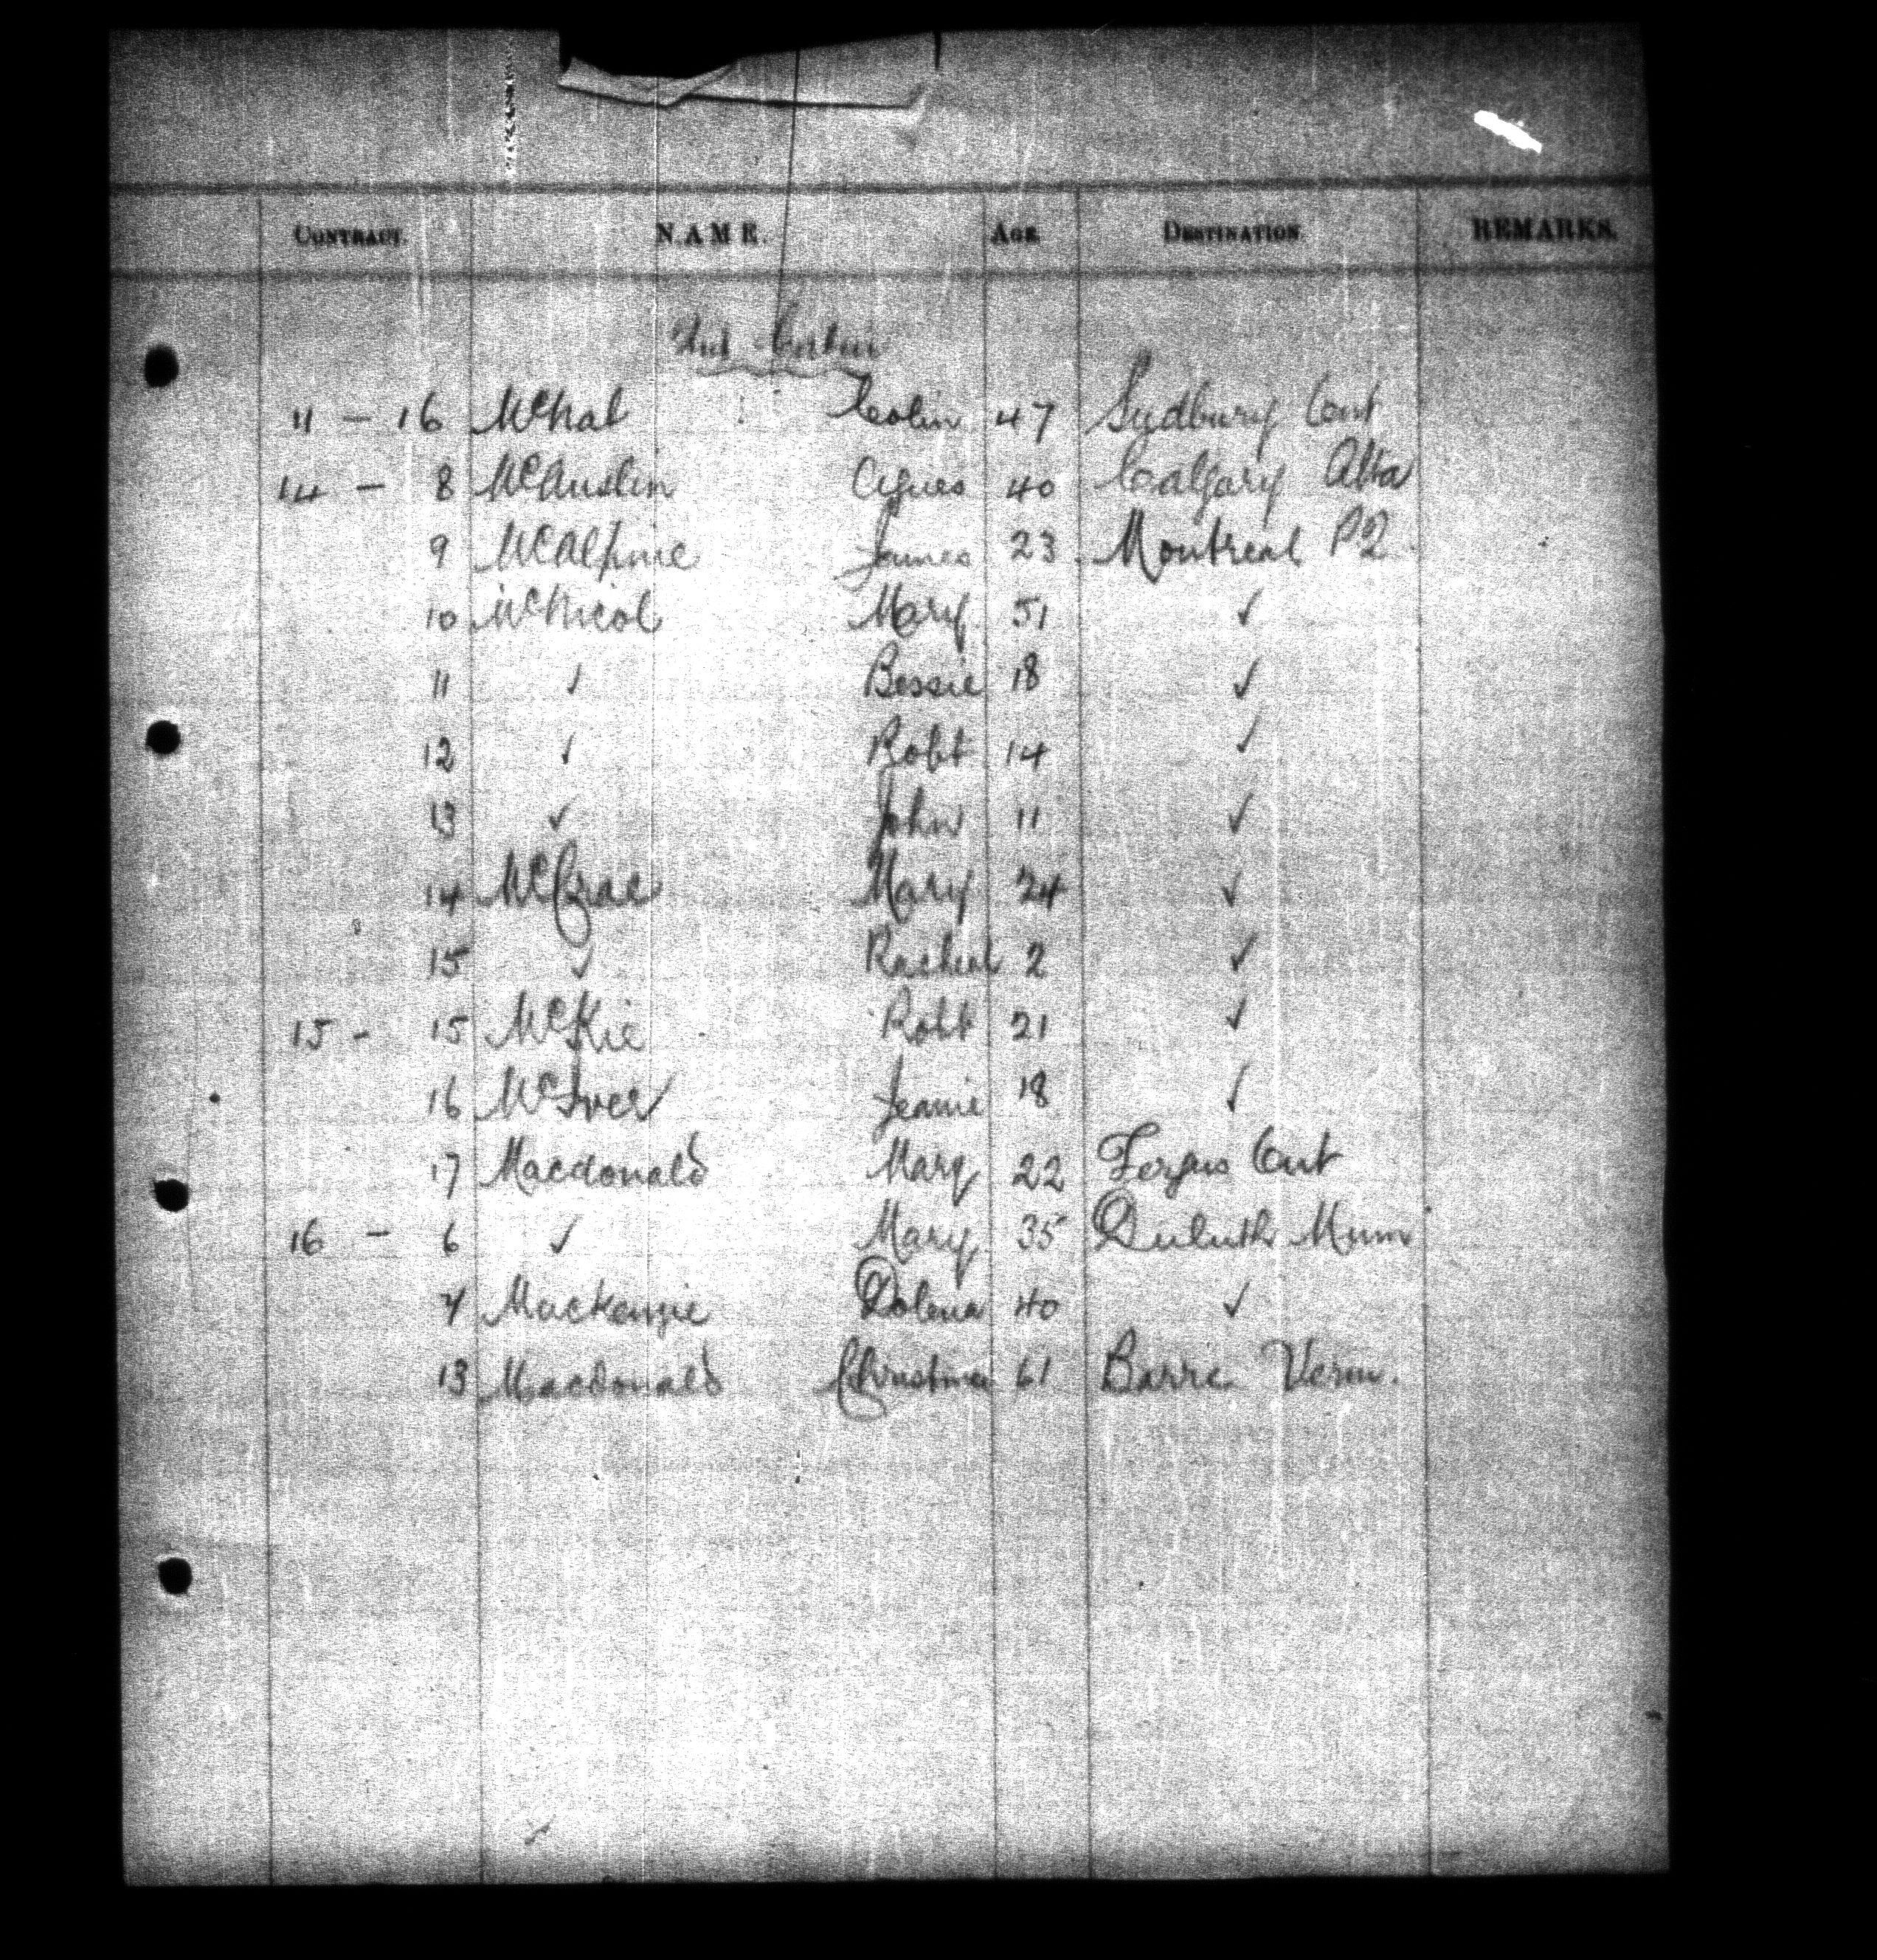 CONTRACT. NAME. AGE DESTINATION. REMARKS.
2nd Cabin
11 - 16 McNab Colin 47 Sydbury Ont
14 - 8 McAuslin Agnes 40 Calgary Alta
9 McAlpine James 23 Montreal PQ
10 McNicol Mary 51 ✓
11 ✓ Bessie 18 ✓
12 ✓ Robt 14 ✓
13 ✓ John 11 ✓
14 McCrae Mary 24 ✓
15 ✓ Rachel 2 ✓
15 - 15 McKie Robt 21 ✓
16 McIver Jeanie 18 ✓
17 Macdonald Mary 22 Fergus Ont
16 - 6 ✓ Mary 35 Duluth Minn
7 Mackenzie Dolena 40 ✓
13 Macdonald Christina 61 Barre Verm.